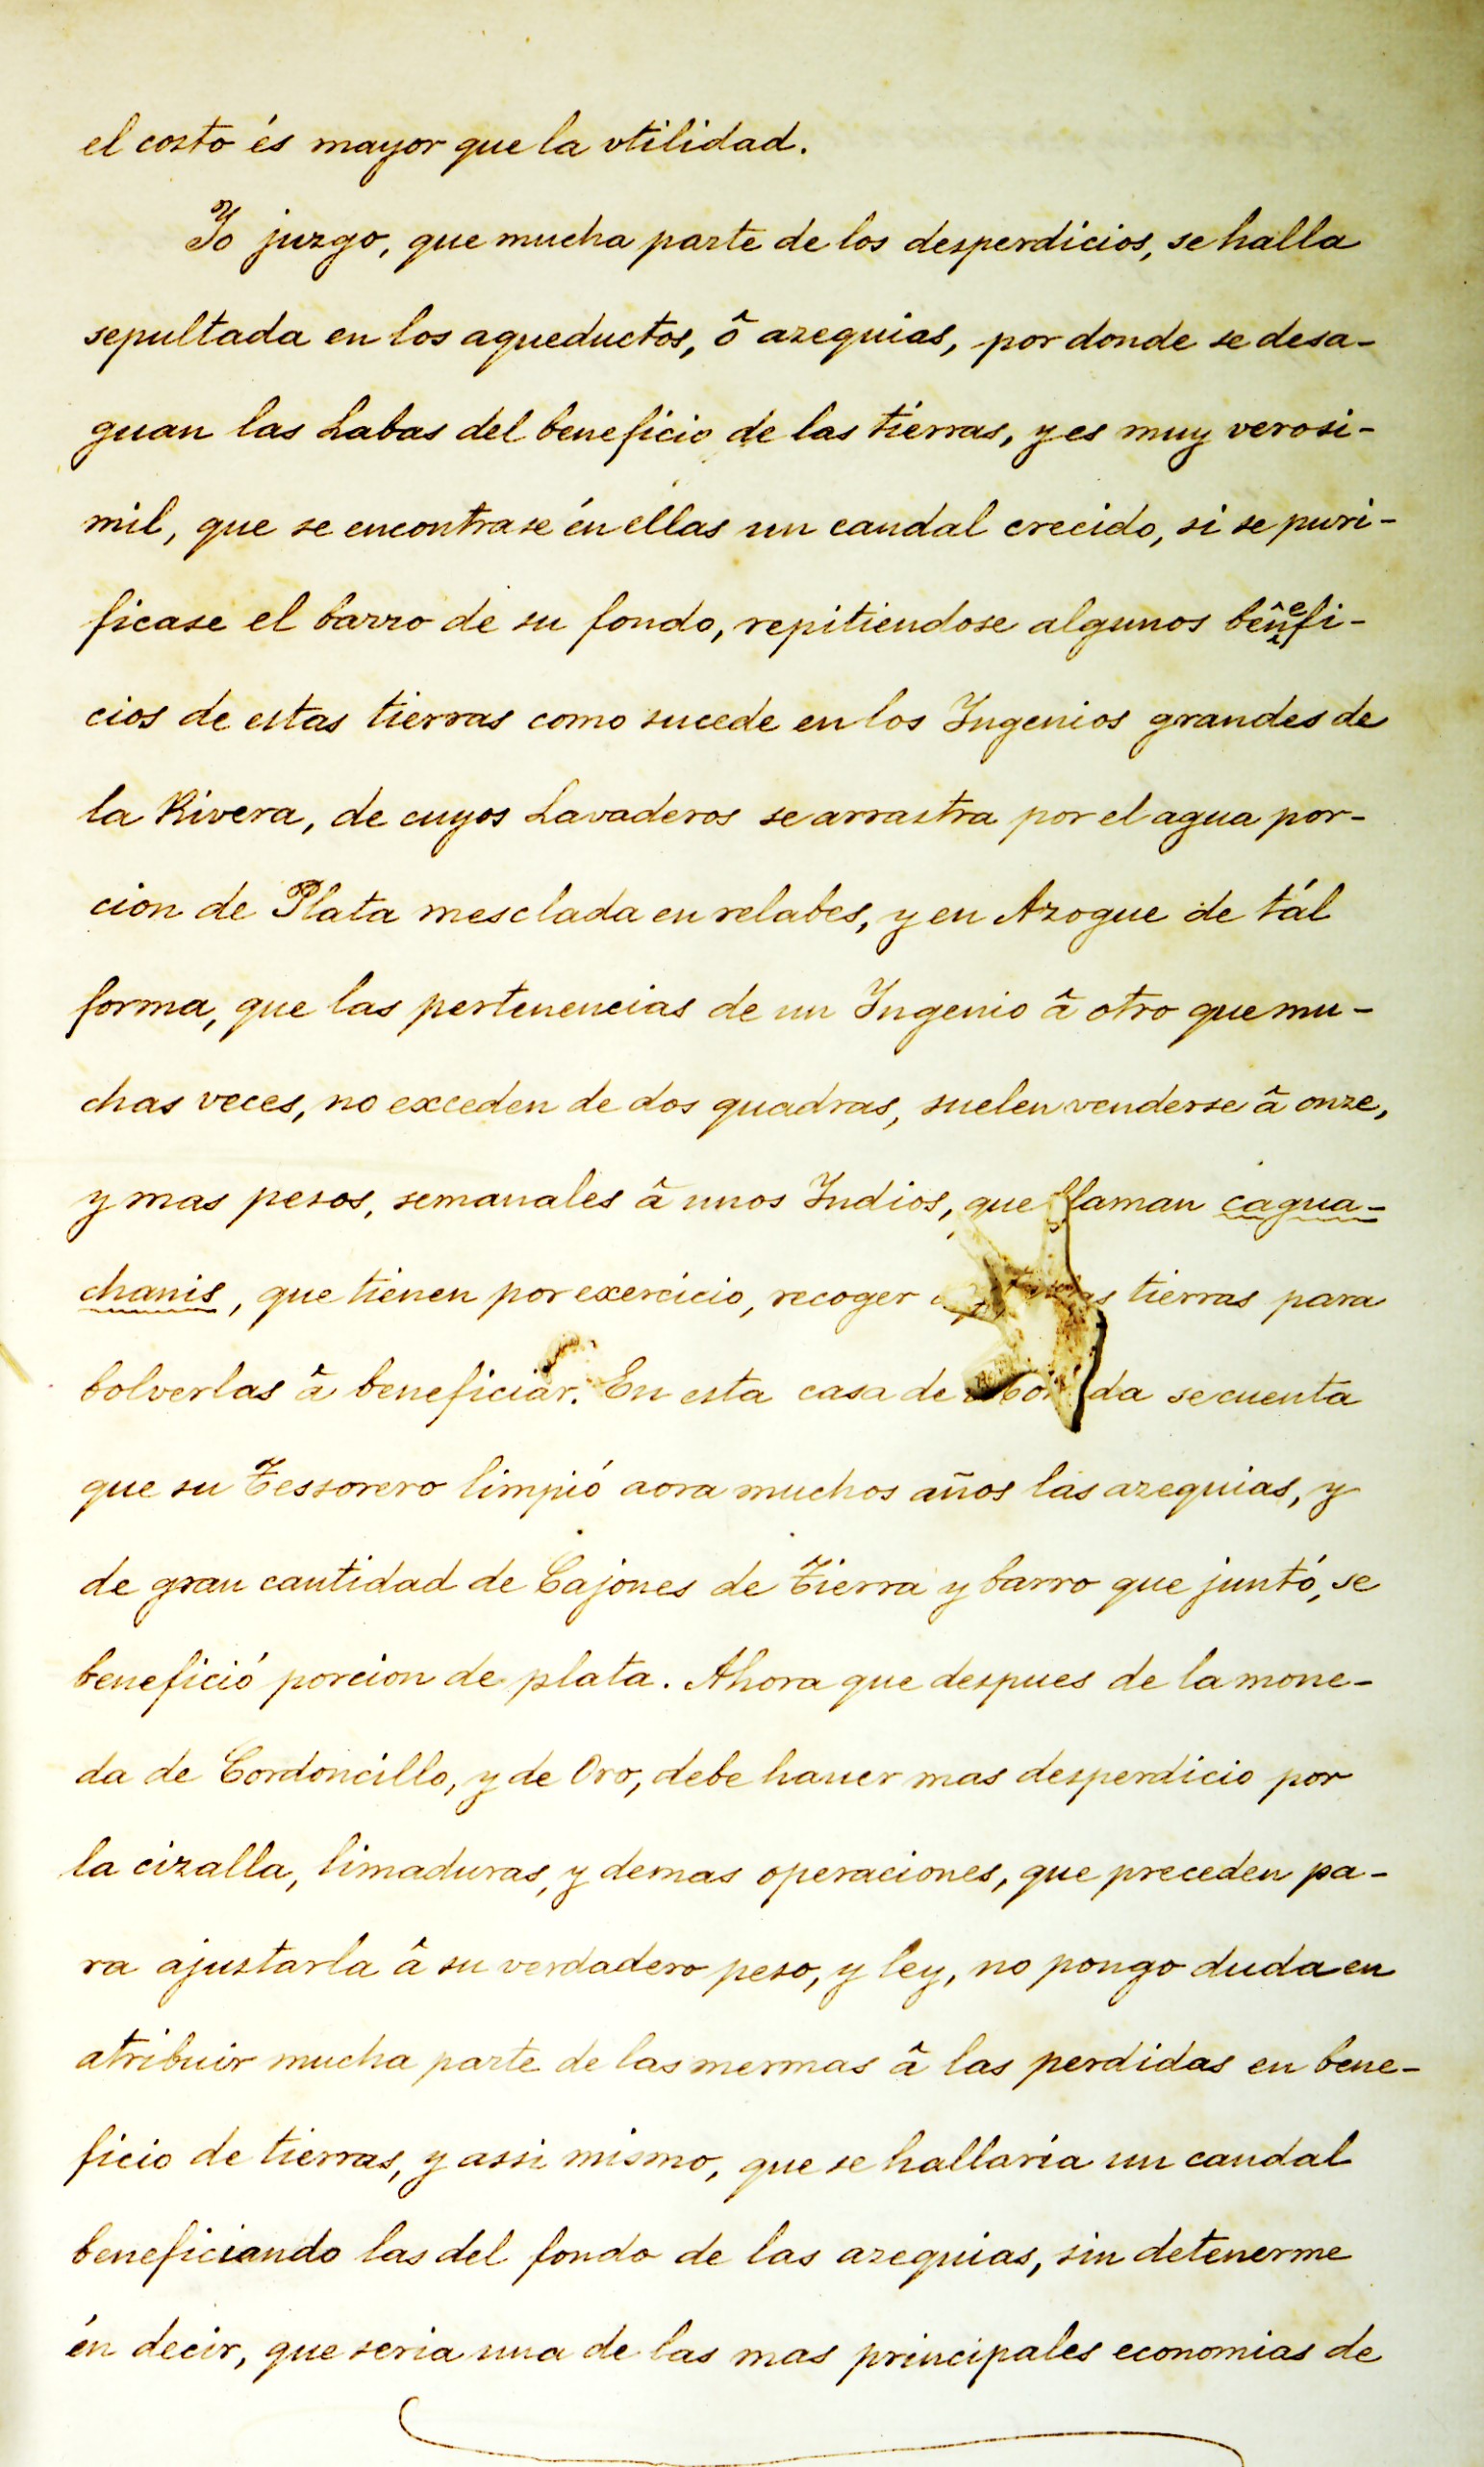 el costo és mayor que la vtilidad.
Yo juzgo, que mucha parte de los desperdicios, se halla
sepultada en los aqueductos, ô azequias, por donde se desa-
guan las Labas del beneficio de las tierras, y es muy verosi-
mil, que se encontrase én ellas un caudal crecido, si se puri-
ficase el barro de su fondo, repitiendose algunos benefi-
cios de estas tierras como sucede en los Ingenios grandes de
la Rivera, de cuyos Lavaderos se arrastra por el agua por-
cion de Plata mesclada en relabes, y en Azogue de tál
forma, que las pertenencias de un Ingenio â otro que mu-
chas veces, no exceden de dos quadras, suelen venderse â onze,
y mas pesos, semanales â unos Indios, que llaman cagua-
chanis, que tienen por exercicio, recoger tierras para
bolverlas â beneficiar. En esta casa de se cuenta
que su Tessorero limpió aora muchos años las azequias, y
de gran cantidad de Cajones de Tierra y barro que juntó, se
benefició porcion de plata. Ahora que despues de la mone-
da de Cordoncillo, y de Oro, debe hauer mas desperdicio por
la cizalla, limaduras, y demas operaciones, que preceden pa-
ra ajustarla â su verdadero peso, y ley, no pongo duda en
atribuir mucha parte de las mermas â las perdidas en bene-
ficio de tierras, y assi mismo, que se hallaria un caudal
beneficiando las del fondo de las azequias, sin detenerme
én decir, que seria una de las mas principales economias de